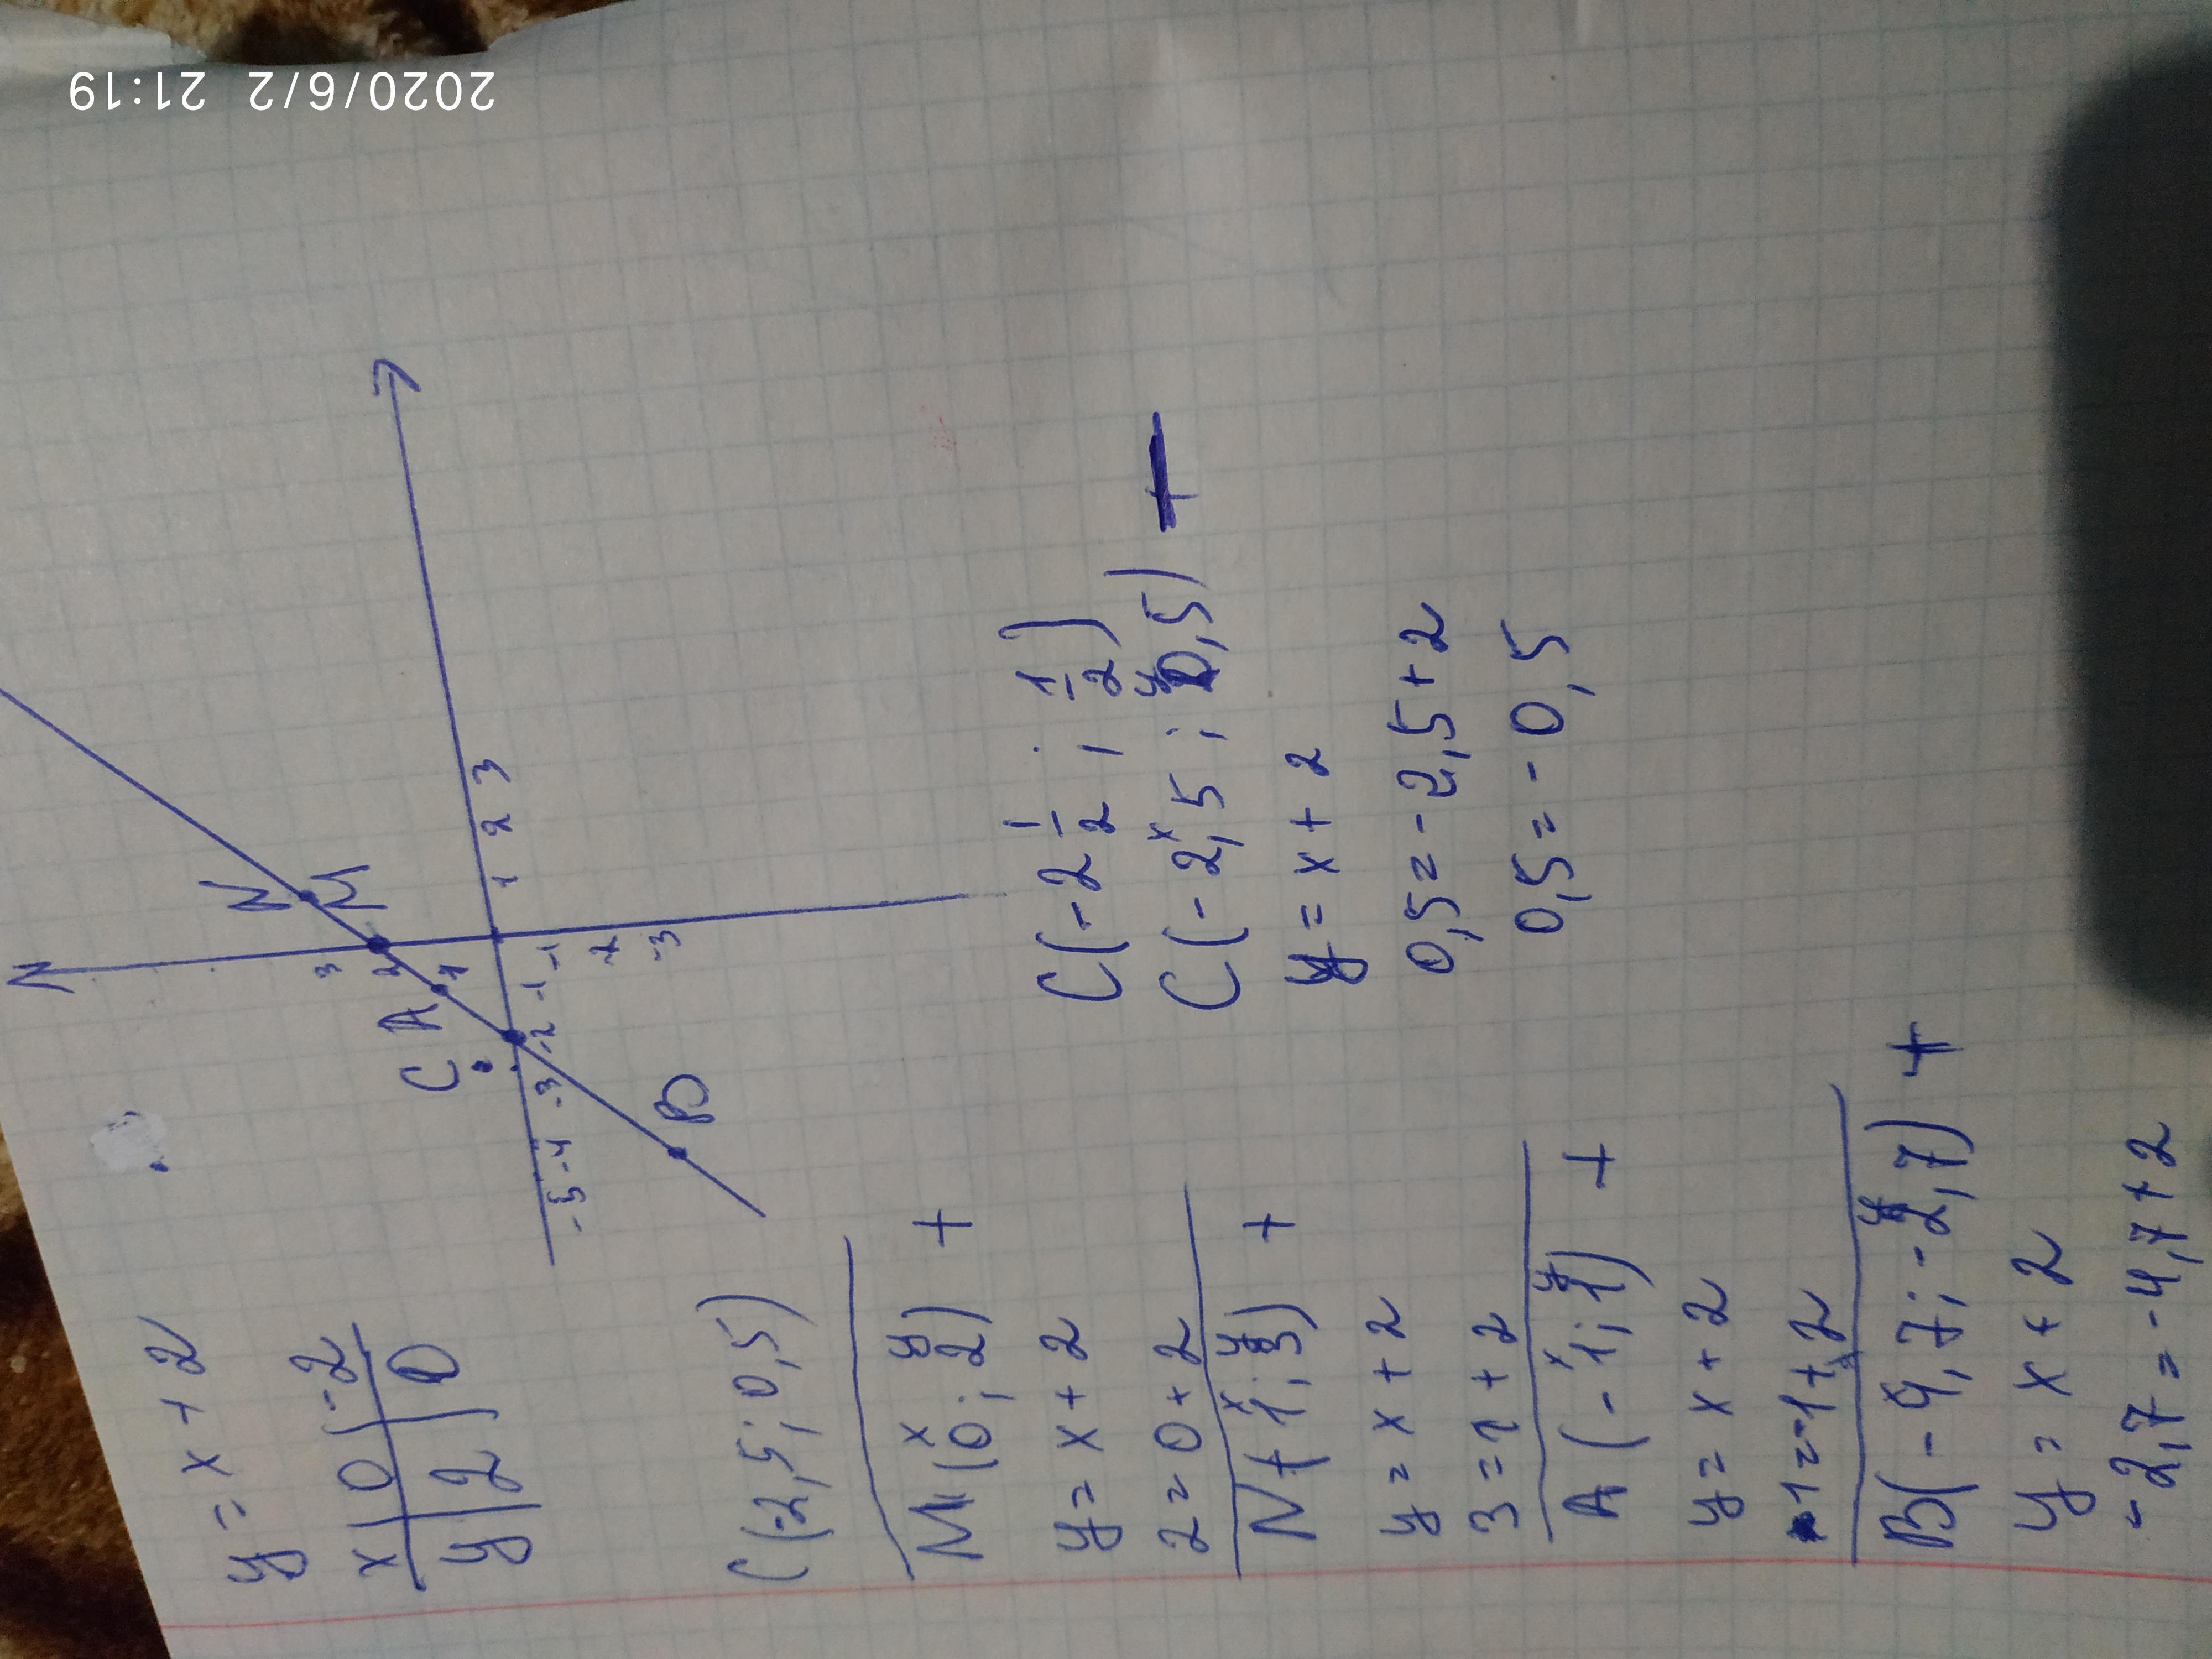 2020/6/2 21:19
y = x + 2
x | 0 | -2
y | 2 | 0
N
M
A
C
B
3
2
1
-5 -4 -3 -2 -1 1 2 3
-1
-2
-3
C (-2,5 ; 0,5)
x y
M (0 ; 2) +
y = x + 2
2 = 0 + 2
x y
N (1 ; 3) +
y = x + 2
3 = 1 + 2
x y
A (-1 ; 1) +
y = x + 2
1 = -1 + 2
x y
B (-4,7 ; -2,7) +
y = x + 2
-2,7 = -4,7 + 2
C (-2 1/2 ; 1/2)
x y
C (-2,5 ; 0,5) —
y = x + 2
0,5 = -2,5 + 2
0,5 = -0,5